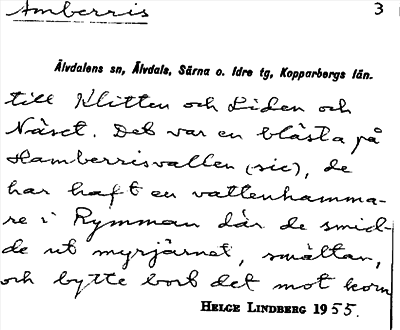 Amberris 3
Älvdalens sn, Älvdals, Särna o. Idre tg, Kopparbergs län.
till Klitten och Liden och
Näset. Det var en blåsta på
Hamberrisvallen (sic), de
har haft en vattenhamma-
re i Rymman där de smid-
de ut myrjärnet, smältan,
och bytte bort det mot korn
HELGE LINDBERG 1955.